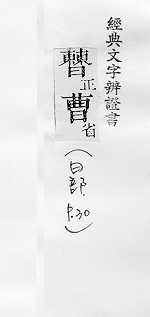 經典文字辨證書
𣍘正曹省
(曰部, p.30)